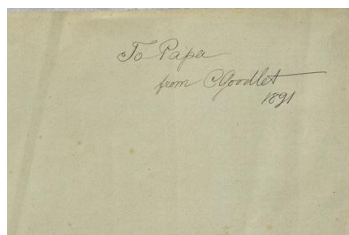 To Papa
from CGoodlet
1891